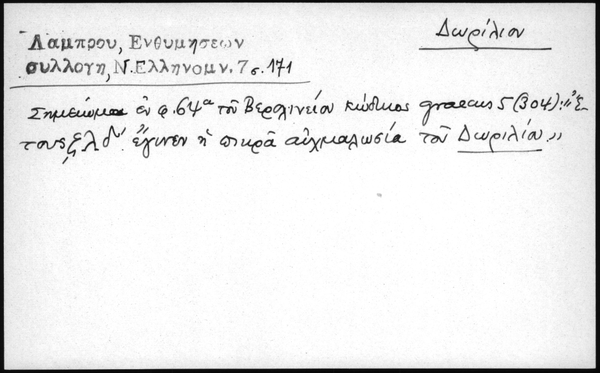 Δωρίλιον
Λάμπρου, Ἐνθυμήσεων
συλλογή, Ν. Ἑλληνομν. 7 σ. 171
Σημείωμα ἐν φ. 64α τοῦ Βερολινείου κώδικος graecus 5 (304): "Ἔ-
τους ͵ςξλδ' ἔγινεν ἡ πικρὰ αἰχμαλωσία τοῦ Δωριλίου."